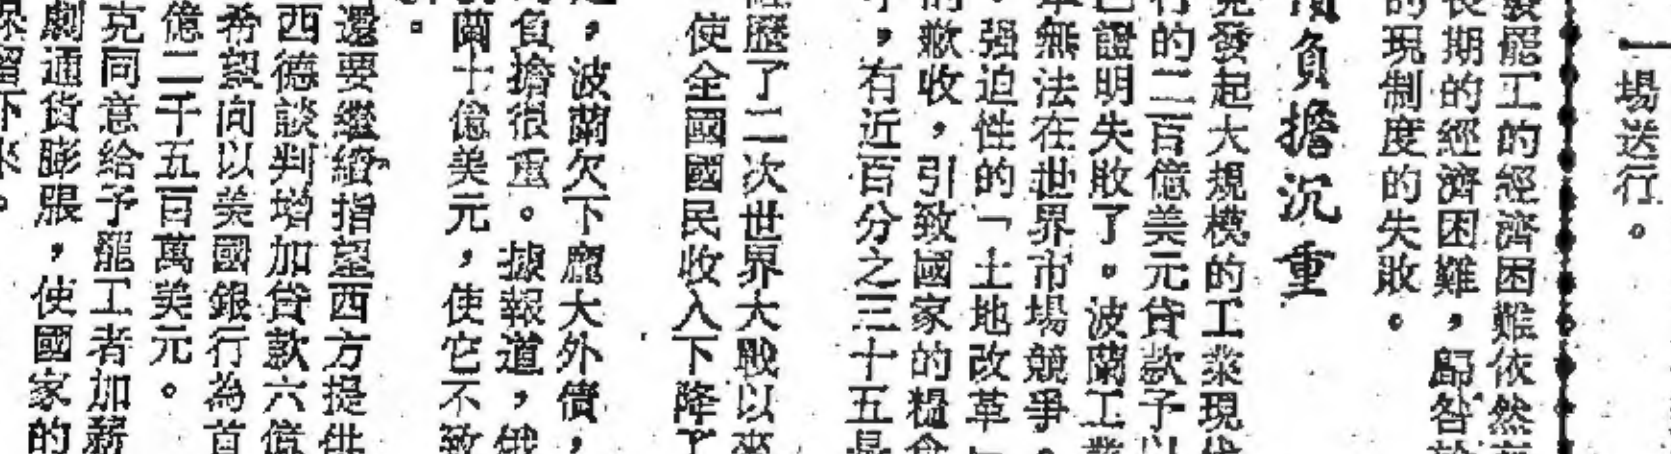 一場送行。
發罷工的經濟困難依然
長期的經濟困難，歸咎於
的現制度的失敗。
負擔沉重
發起大規模的工業現
行的二百億美元貸款予以
已證明失敗了。波蘭工業
無法在世界市場競爭。
强迫性的「土地改革」
的歉收，引致國家的糧食
，有近百分之三十五是
經歷了二次世界大戰以來
使全國國民收入下降了
，波蘭欠下龐大外債，
負擔很重。據報道，俄
蘭十億美元，使它不致
。
還要繼續指望西方提供
西德談判增加貸款六億
希望向以美國銀行為首
億二千五百萬美元。
克同意給予罷工者加薪
劇通貨膨脹，使國家的
保留下來。